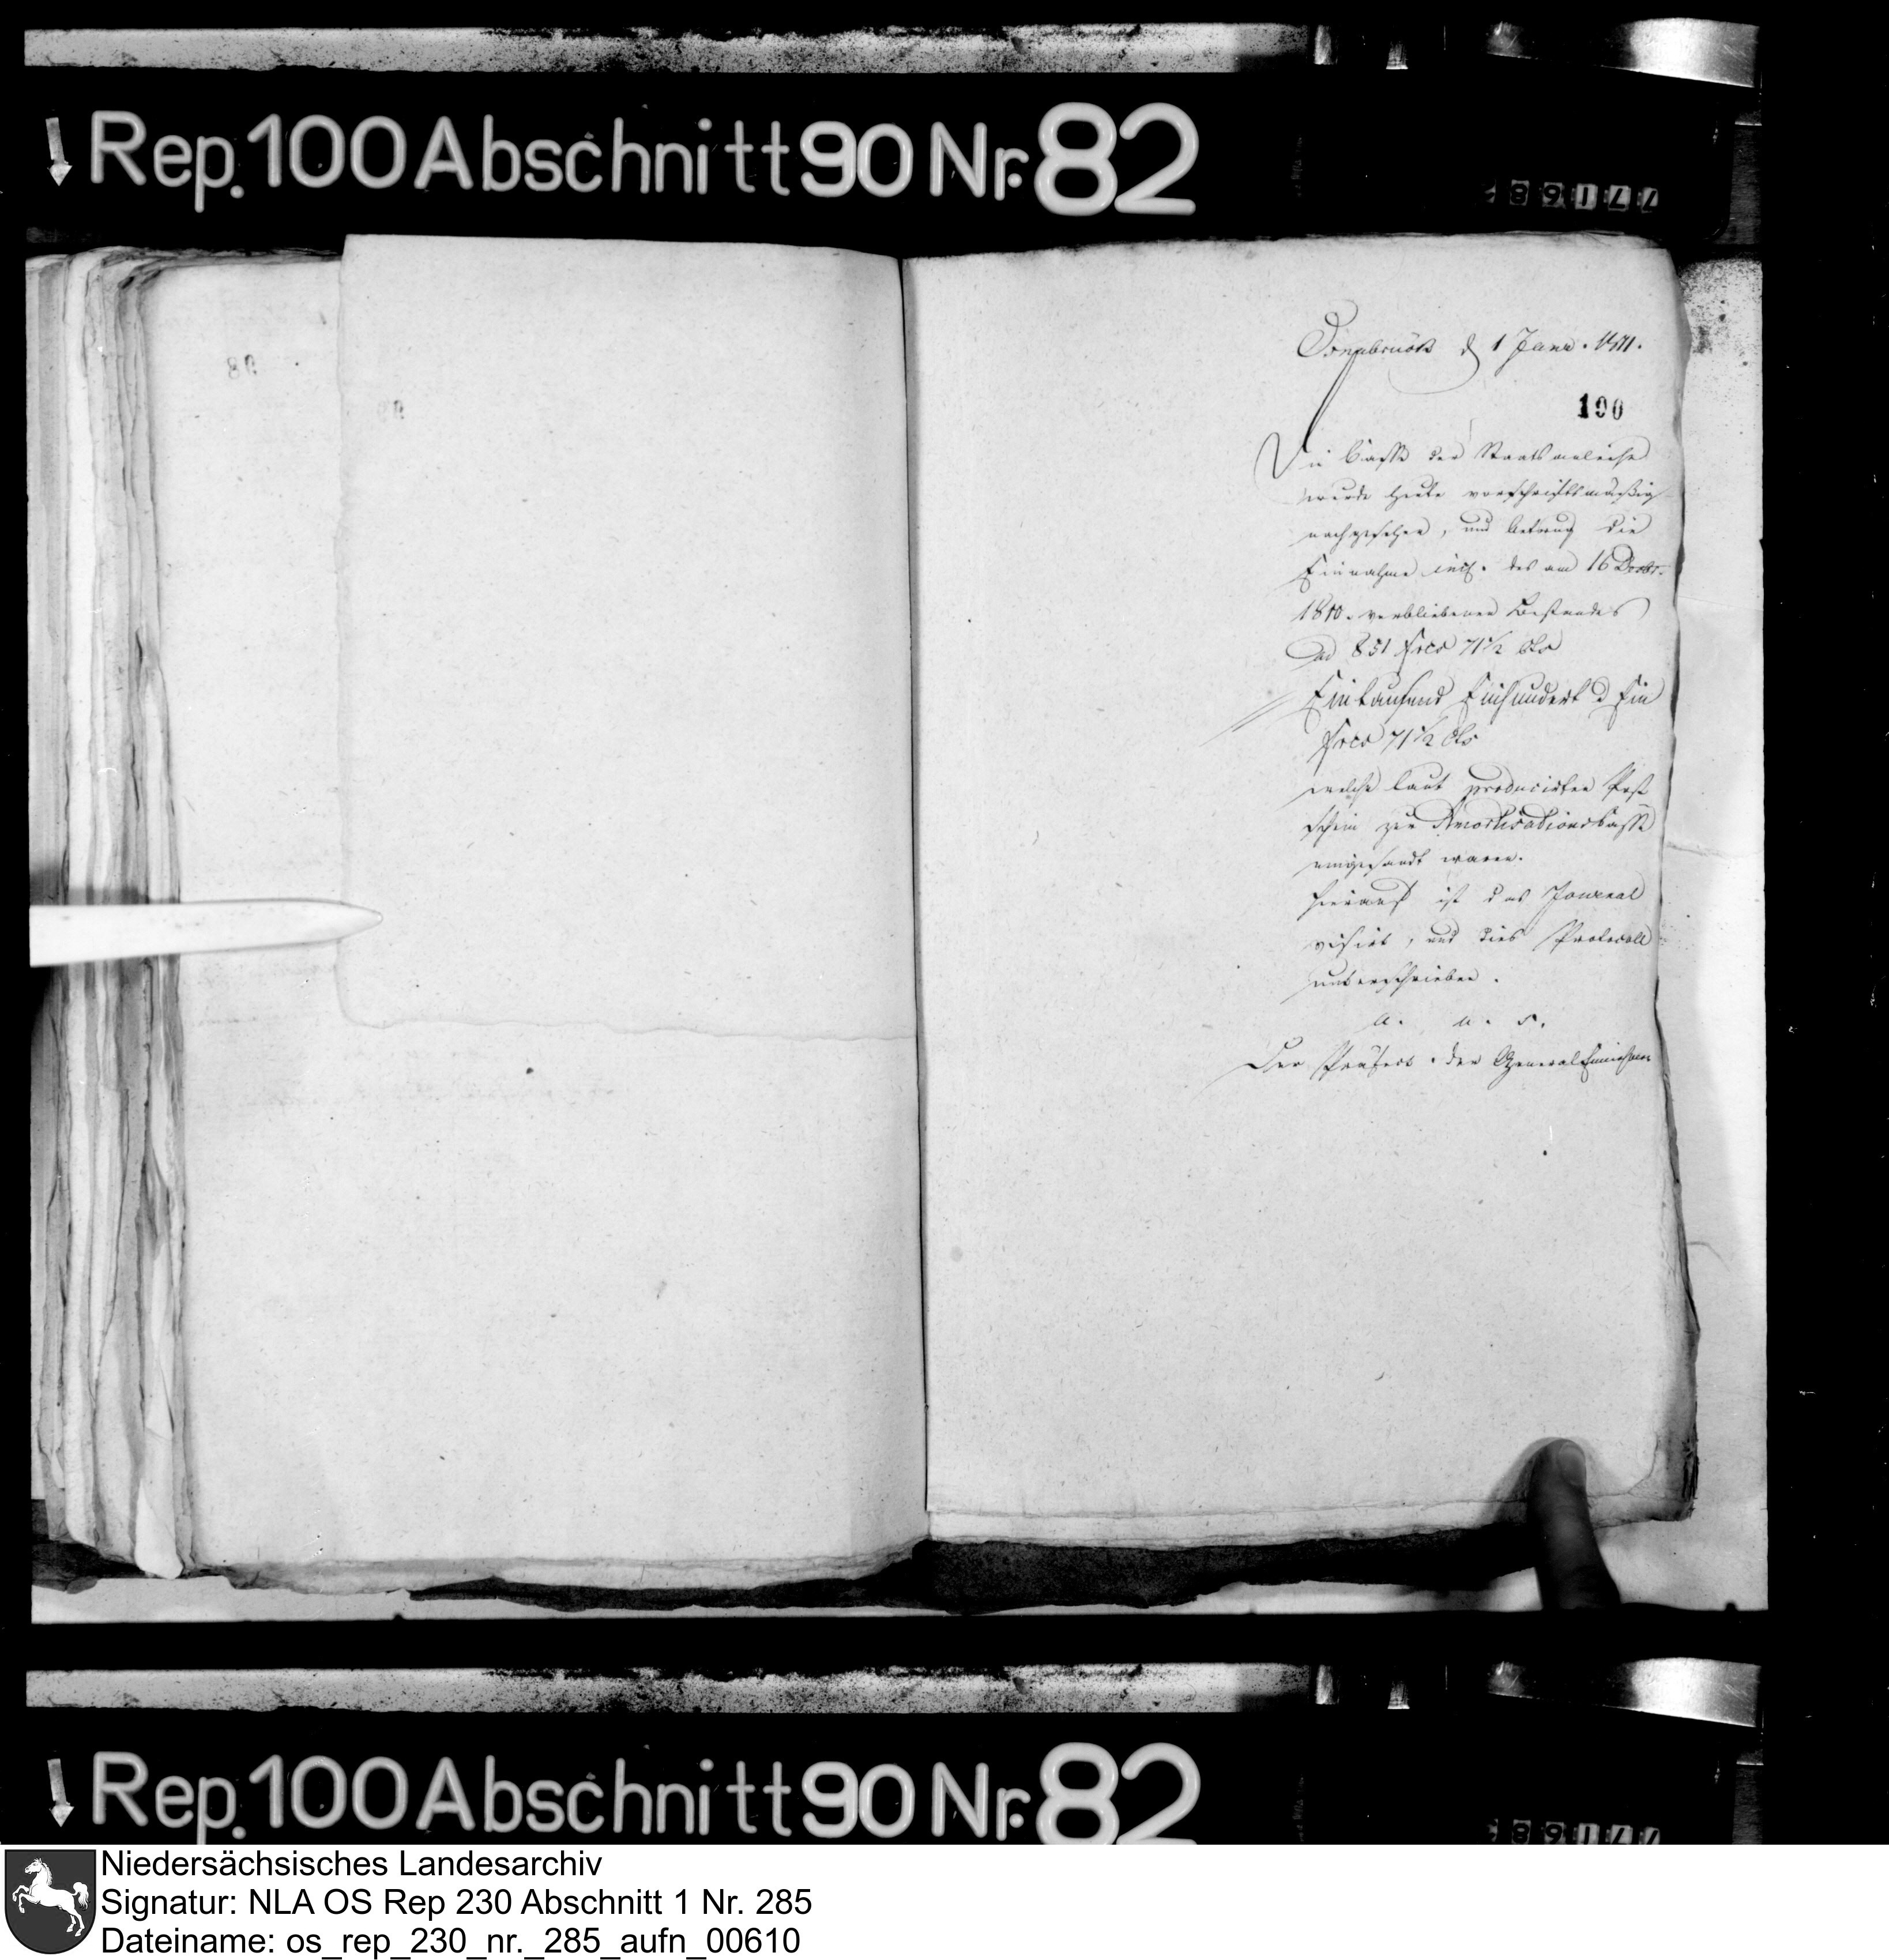 Rep. 100 Abschnitt 90 Nr. 82
Osnabrück d 1 Janr. 1811.
100
Die Casse der Staatsanleihe
wurde heute vorschriftsmäßig
nachgesehen, und betrug die
Einnahme incl. des am 16 Decbr.
1810. verbliebenen Bestandes
ad 851 Frcs 71 1/2 Cts
Eintausend Einhundert d Ein
Frcs 71 1/2 Cts
welche laut producirten Post
schein zur Amortisationscasse
eingesandt waren.
Hierauf ist das Journal
visirt, und dies Protocoll
unterschrieben.
a. u. s.
Der Präfect. der General Einnehmer
Rep. 100 Abschnitt 90 Nr. 82
Niedersächsisches Landesarchiv
Signatur: NLA OS Rep 230 Abschnitt 1 Nr. 285
Dateiname: os_rep_230_nr._285_aufn_00610